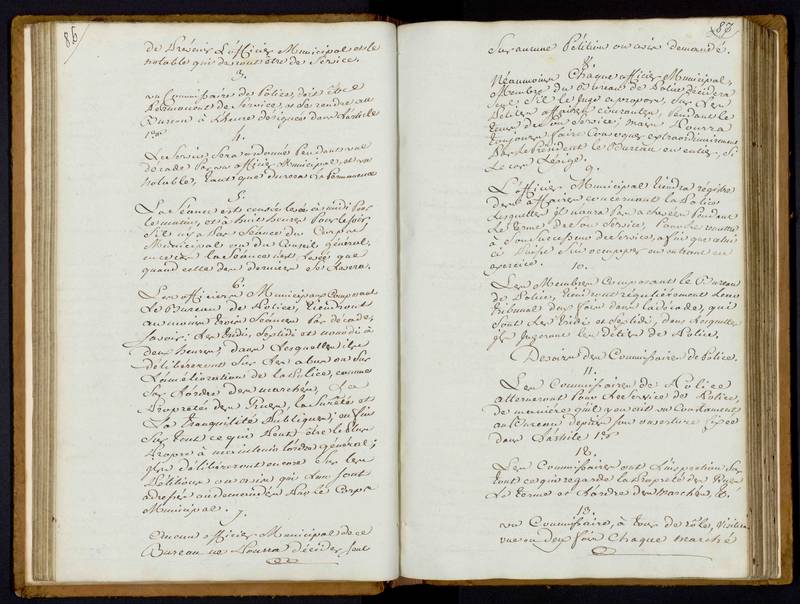 86
de Prévenir L'officier Municipal et le
notable qui devront être de Service.
3.
un Commissaire de Police, doit être
Permanent de Service, et se rendre au
Bureau à L'heure désignée dans L'article
1er
4.
Le Service Sera ordonné Pendant une
décade Par un officier Municipal, et un
notable, tant que durera la Permanence
5.
La Séance est censée levée à midi Pour
le matin, et à huit heures Pour le soir,
S'il n'y a Pas Séance du Corps
Municipal ou du Conseil général,
en ce cas la Séance n'est Levée que
quand celle de ces derniers se Lèvera.
6.
Les officiers Municipaux Composant
Le Bureau de Police, tiendront
au moins trois Séances Par décade,
Savoir: Les tridi, Septidi et nonidi à
deux heures, dans Lesquelles ils
délibéreront Sur Les abus ou Sur
L'amélioration de la Police, comme
Sur L'ordre des marchés, La
Propreté des Rues, la Sureté et
La tranquilité Publiques, enfin
Sur tout ce qui Peut être le Plus
Propre à maintenir l'ordre général;
ils délibéreront encore Sur les
Pétitions ou avis qui Leur sont
adressés ou demandés Par Le Corps
Municipal.
7.
Aucun officier Municipal de ce
Bureau ne Pourra décider seul
87
Sur aucune Pétition ou avis demandé.
8.
Néanmoins Chaque officier Municipal,
Membre du Bureau de Police décidera
Seul, S'il le Juge à propos, Sur Les
Petites affaires courantes, Pendant le
tems de son Service; mais Pourra
toujours faire Convoquer extraordinairement
Par le Président le Bureau en entier, Si
Le cas L'exige.
9.
L'officier Municipal tiendra régistre
des affaires concernant la Police
Lesquelles il n'aura Pas achevées Pendant
Le terme de son Service, Pour les remettre
à Son Successeur de Service, afin que celui
ci Puisse S'en occuper en entrant en
exercice.
10.
Les Membres Composant le Bureau
de Police, tiendront régulièrement Leur
Tribunal deux fois dans la décade, qui
Sont Les tridi et Septidi, dans Lesquelles
ils Jugeront Les délits de Police.
Devoirs des Commissaires de Police.
11.
Les Commissaires de Police
alterneront Pour Le Service de Police,
de manière qu'il y en ait un Constamment
au Bureau depuis Son ouverture fixée
dans L'article 1er
12.
Les Commissaires ont L'inspection Sur
tout ce qui regarde la Propreté des Rues
La ferme et L'ordre des Marchés, &c.
13.
un Commissaire, à tour de rôle, Visitera
une ou deux fois Chaque marché